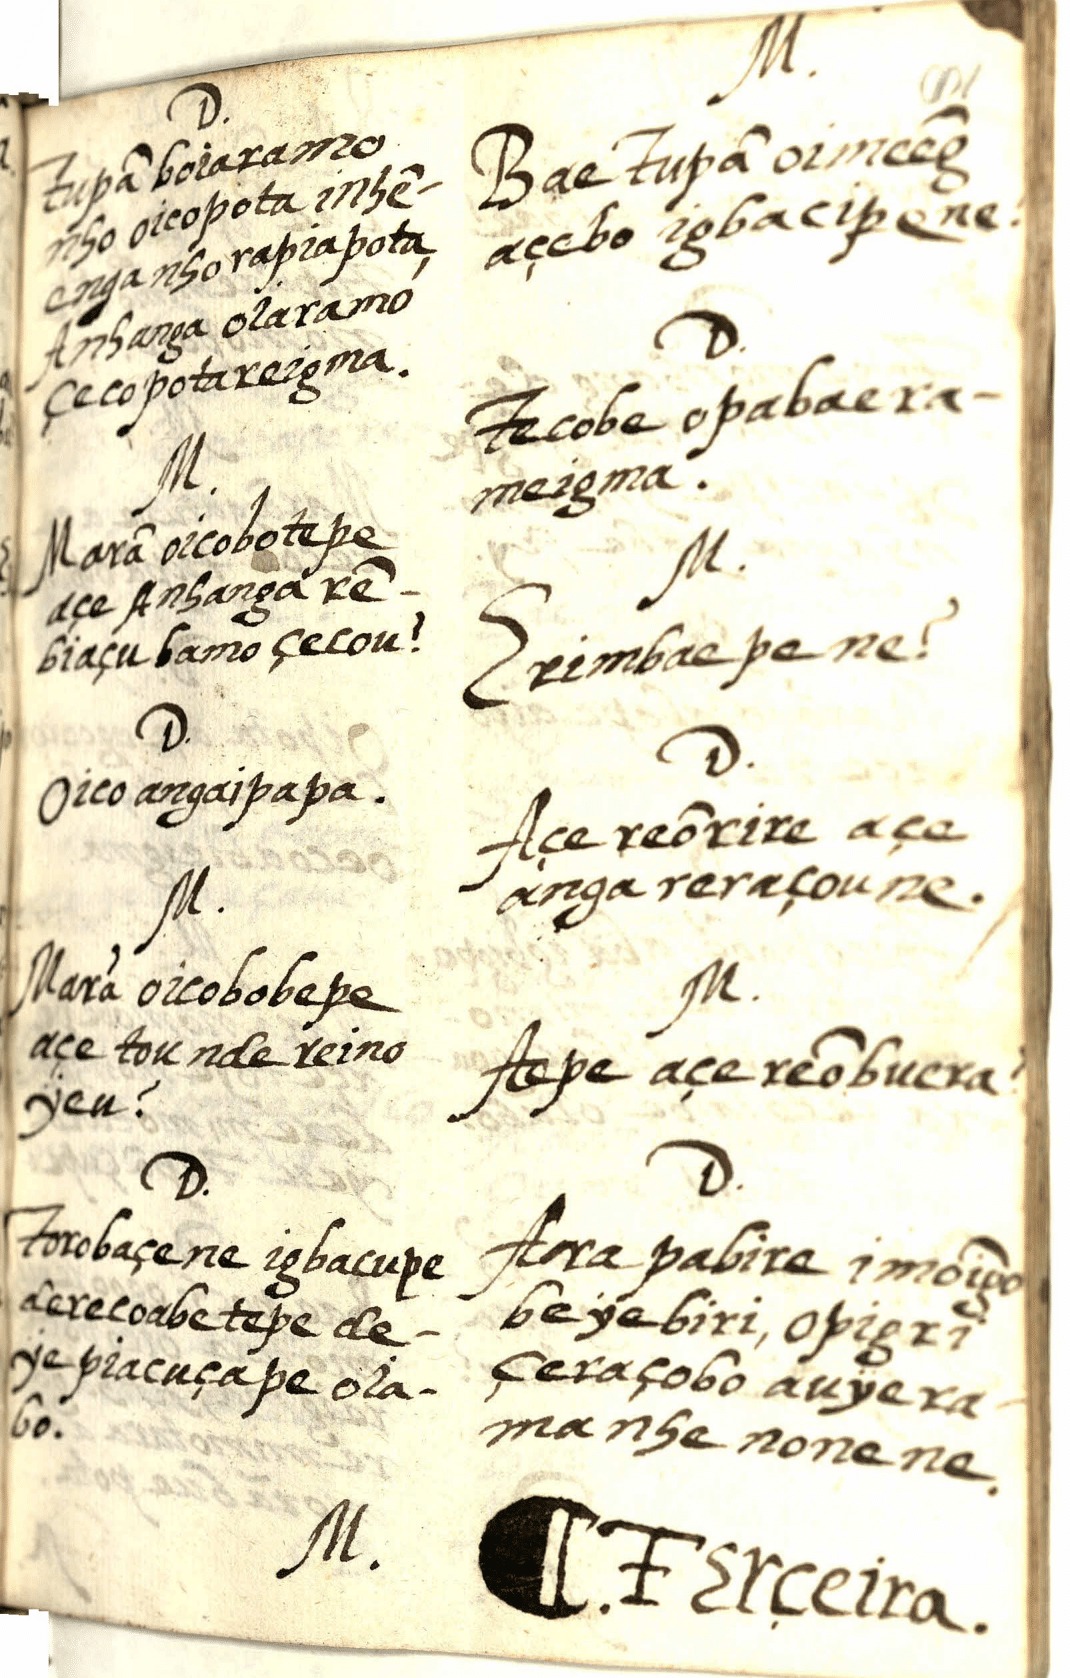 D.
Tupã boiaramo
nho oicopota inhẽ-
enga nho rapiapota,
Anhanga oiaramo
çecopotareigma.
M.
Marã oicobotepe
açe Anhanga rẽ-
biaçu bamo çecou?
D.
Oico angaipapa.
M.
Marã oicobobepe
açe tou nde reino
ÿeu?
D.
Torobaçene igbacupe
derecoabe tepe de-
ÿe piacuçape oia-
bo.
M.
M.
Bae Tupã oimeẽg
açebo igbacipene?
D.
Tecobe opabaera-
meigma.
M.
Erimbaepene?
D.
Açe reõrire açe
anga reraçoune.
M.
Aepe açe reõbuera?
D.
Aora pabire imoingo
beÿebiri, opigri
çeraçobo auÿera-
manhe nonene.
¶. Terçeira.